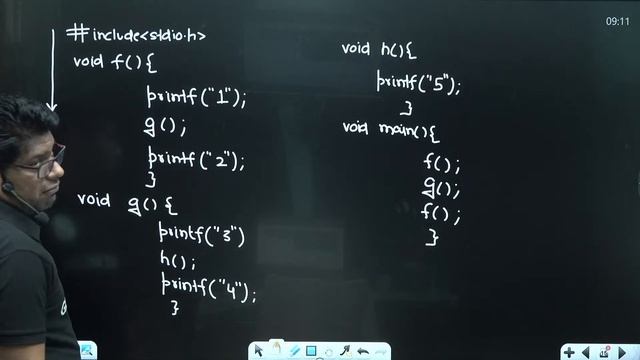 09:11
#include<stdio.h>
void f(){
printf("1");
g();
printf("2");
}
void g(){
printf("3")
h();
printf("4");
}
void h(){
printf("5");
}
void main(){
f();
g();
f();
}